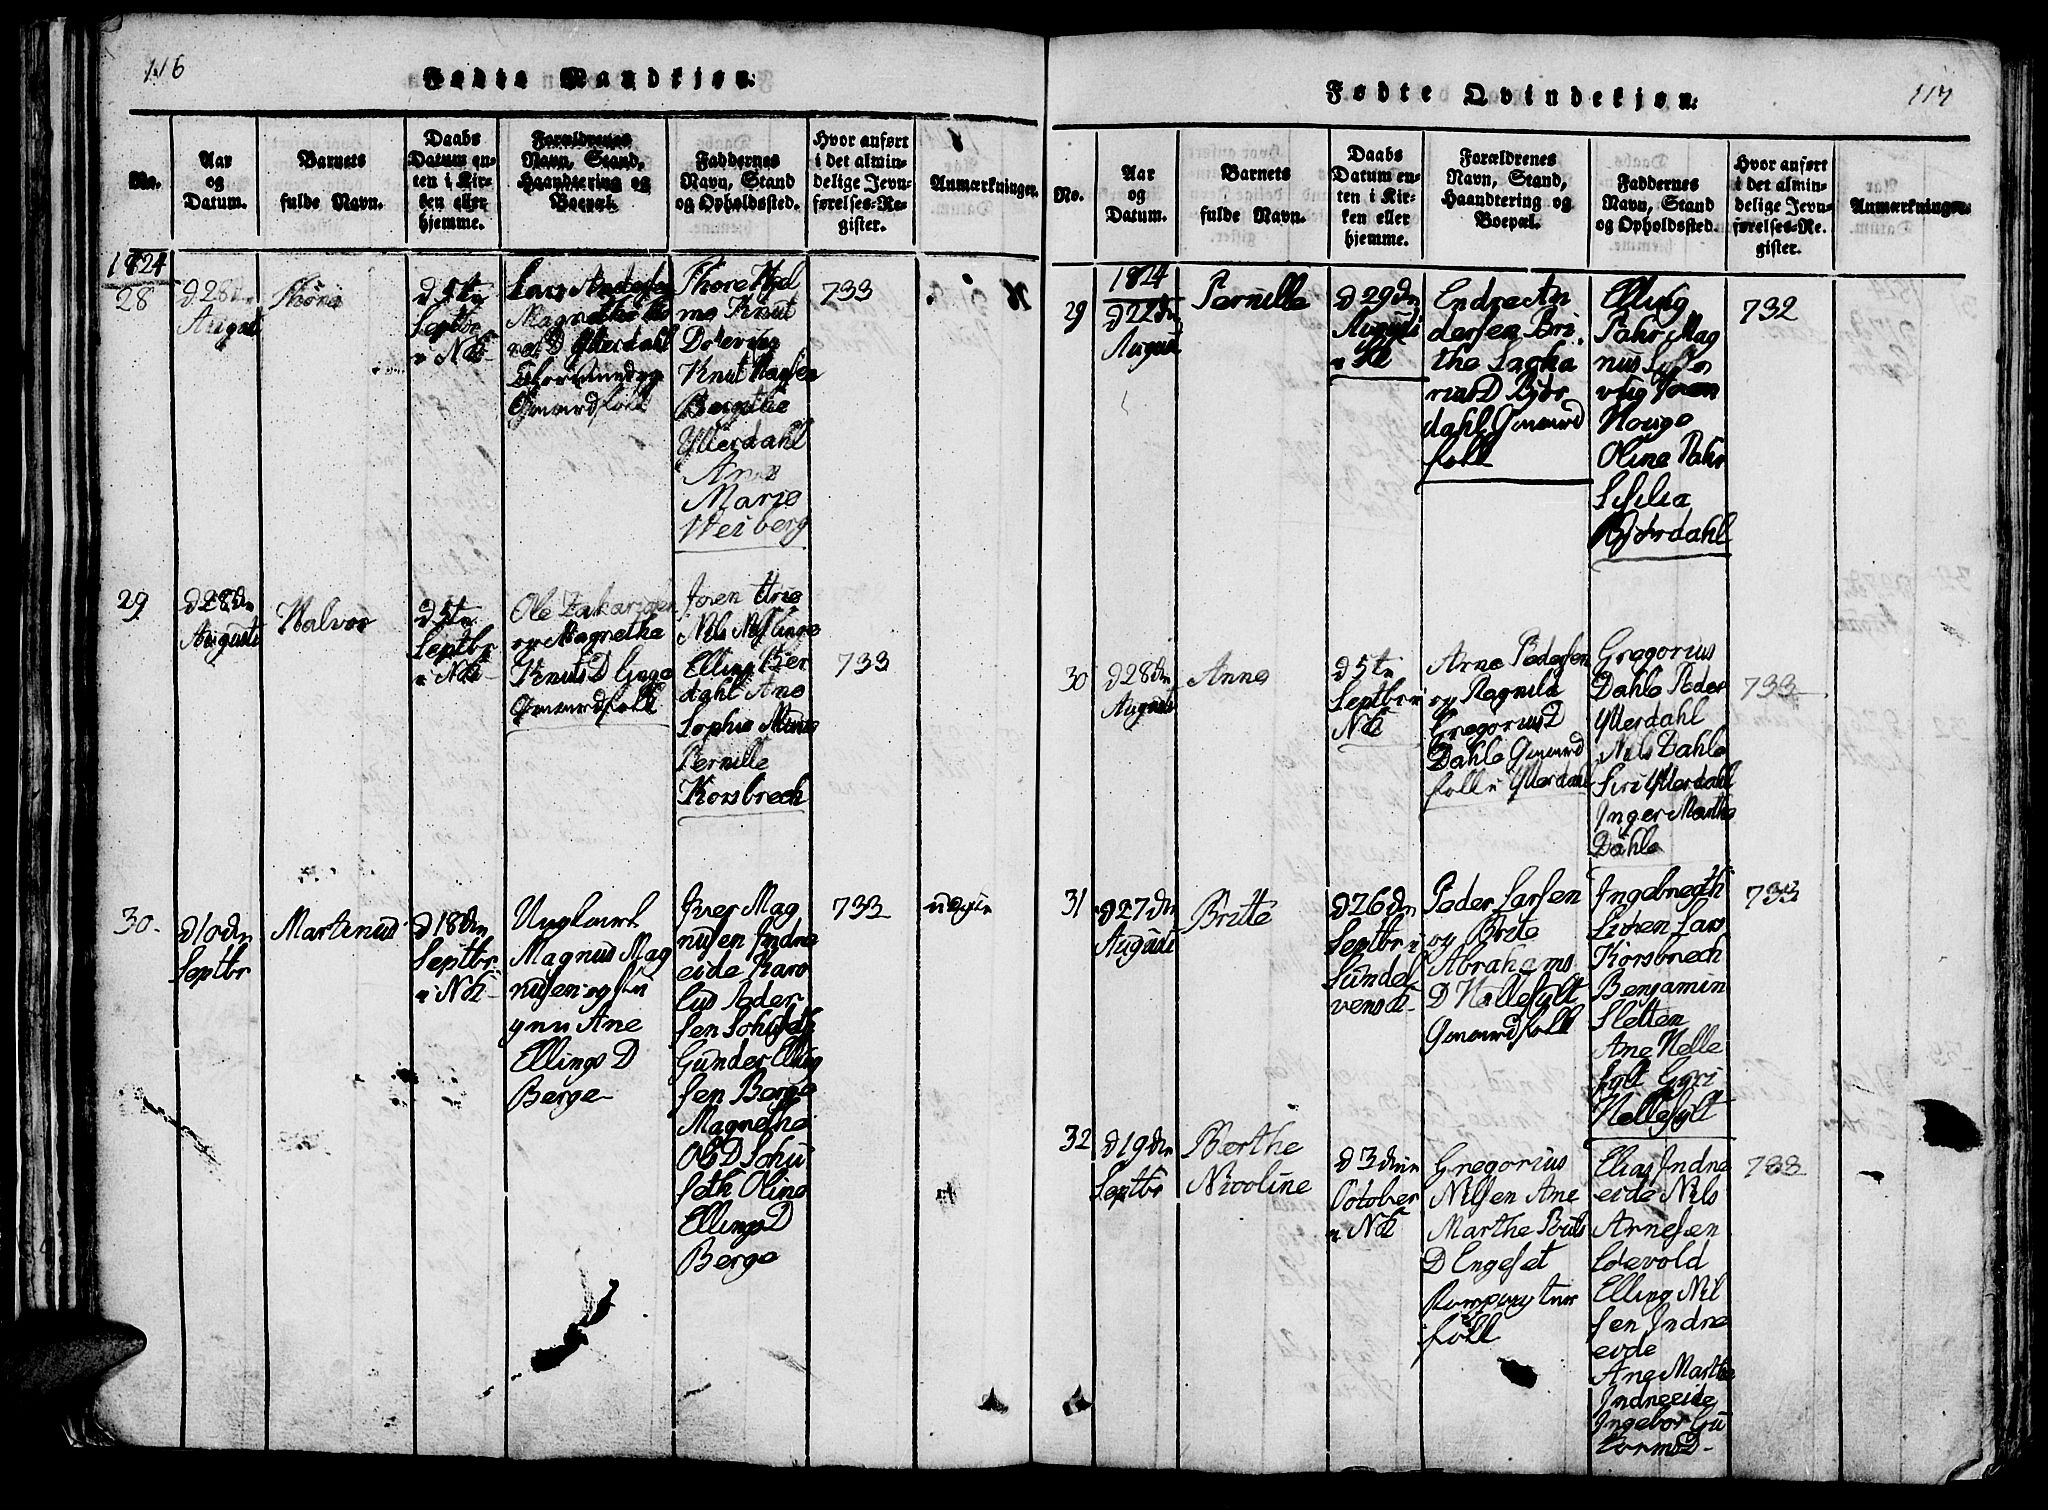 116
Fødte Mandkjøn.
No.
Aar
og
Datum.
Barnets
fulde Navn.
Daabs
Datum en-
ten i Kir-
ken eller
hjemme.
Forældrenes
Navn, Stand,
Haandtering og
Boepæl.
Faddernes
Navn, Stand
og Opholdssted.
Hvor anført
i det almin-
delige Jevn-
førelses-Re-
gister.
Anmærkninger.
1824
28
d 28de
August
Thore
d 5te
Septbr
i NK
Lars Andersen
D Ytterdahl
Gmardfolk
Thore Hjel
me Knut
Knut Hansen
Bergithe
Ytterdahl
Ane
Marie
Weiberg
733
29
d 28de
August
Halvor
d 5te
Septbr
i NK
Ole Zakariasen
og Magnethe
Knuts D
Gmardfolk
Joen Urie
Nils
Elling Kier
dahl Ane
Sophie
Pernille
Korsbrech
733
30
d 10de
Septbr
Martinus
d 18de
Septbr
i NK
Ungkarl
Magnus Mag
nusen og
Ane
Ellings D
Berge
Iver Mag
nusen Indre
eide Karo
lus Peder
sen
Gunder Elling
sen Berge
Magnethe
Ols D
seth Oline
Ellings D
Berge
733
117
Fødte Qvindekjøn.
No.
Aar
og
Datum.
Barnets
fulde Navn.
Daabs
Datum en-
ten i Kir-
ken eller
hjemme.
Forældrenes
Navn, Stand,
Haandtering og
Boepæl.
Faddernes
Navn, Stand
og Opholdssted.
Hvor anført
i det almin-
delige Jevn-
førelses-Re-
gister.
Anmærkninger.
1824
29
d 22de
August
Pernille
d 29de
August
i
Endre An
dersen Bri
the Sacha
rias D Bjør
dahl Gmard
folk
Elling
Mag
nus
Joen
Houge
Oline
Sesilia
Bjørdahl
732
30
d 28de
August
Anne
d 5te
Septbr i
NK
Arne Pedersen
og Ragnild
Gregorius D
Dahle Gmard
folk i Ytterdahl
Gregorius
Dahle Peder
Ytterdahl
Nils Dahle
Siri Ytterdahl
Inger Marthe
Dahle
733
31
d 27de
August
Britte
d 26de
Septbr i
Sundel
vens K
Peder Larsen
og Brite
Abrahams
D Hellesylt
Gmardfolk
Ingebregth
Lars
Korsbrech
Benjamin
Sletten
Ane Helle
sylt Gyri
Hellesylt
733
32
d 19de
Septbr
Berthe
Nicoline
d 3die
October
i NK
Gregorius
Nilsen Ane
Marthe Pouls
D Engeset
folk
Elias Indre
eide Nils
Arnesen
Løevold
Elling Nil
sen Indre
eide
Ane Marthe
Indreeide
Ingebor Gu
torms D
733